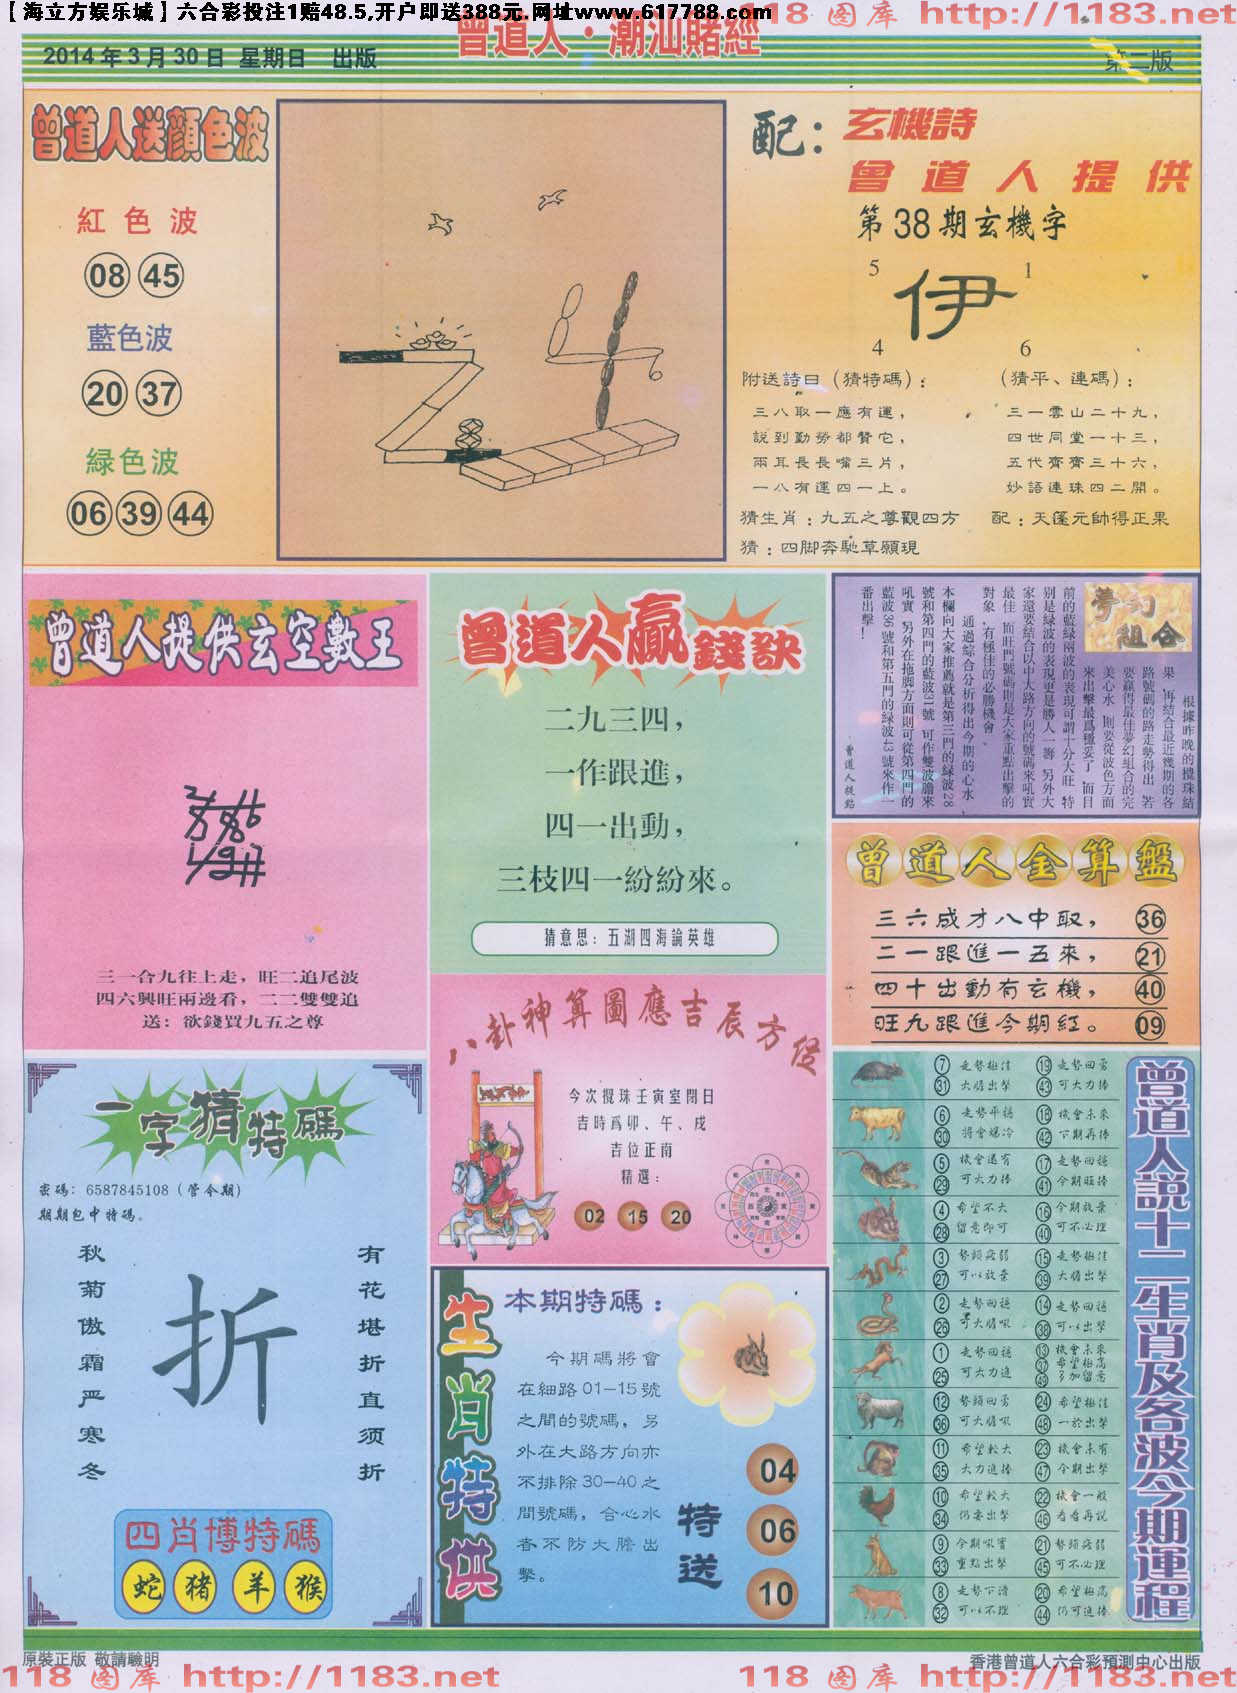 【海立方娱乐城】六合彩投注1赔48.5,开户即送388元.网址www.617788.com
118 图库 http://1183.net
曾道人·潮汕賭經
2014年3月30日 星期日 出版
第二版
曾道人送顏色波
紅色波
08 45
藍色波
20 37
緑色波
06 39 44
配：玄機詩
曾道人提供
第38期玄機字
5 1
伊
4 6
附送詩曰（猜特碼）：
三八取一應有運，
説到勤勞都贊它，
兩耳長長嘴三片，
一八有運四一上。
（猜平、連碼）：
三一雲山二十九，
四世同堂一十三，
五代齊齊三十六，
妙語連珠四二開。
猜生肖：九五之尊觀四方
配：天蓬元帥得正果
猜：四脚奔馳草願現
曾道人提供玄空數王
三一合九往上走，旺二追尾波
四六興旺兩邊看，二二雙雙追
送：欲錢買九五之尊
曾道人贏錢訣
二九三四，
一作跟進，
四一出動，
三枝四一紛紛來。
猜意思：五湖四海論英雄
夢幻
組合
根據昨晚的攪珠結
果，再結合最近幾期的各
路號碼的路走勢得出，若
要贏得最佳夢幻組合的完
美心水，則要從波色方面
來出擊最爲穩妥了，而目
前的藍緑兩波的表現可謂十分大旺，特
别是緑波的表現更是勝人一籌，另外大
家還要結合以中大路方向的號碼來吼實
最佳，而旺門號碼則是大家重點出擊的
對象，有極佳的必勝機會。
通過綜合分析得出今期的心水
本欄向大家推薦就是第三門的緑波28
號和第四門的藍波31號，可作雙波膽來
吼實，另外在拖脚方面則可從第四門的
藍波36號和第五門的緑波43號來作一
番出擊！
曾道人提點
曾道人金算盤
三六成才八中取， 36
二一跟進一五來， 21
四十出動有玄機， 40
旺九跟進今期紅。 09
八卦神算圖應吉辰方位
今次攪珠壬寅室閉日
吉時爲卯、午、戌
吉位正南
精選：
02 15 20
一字猜特碼
密碼：6587845108（管今期）
期期包中特碼。
秋菊傲霜严寒冬
折
有花堪折直须折
四肖博特碼
蛇 豬 羊 猴
生肖特供
本期特碼：
今期碼將會
在細路01-15號
之間的號碼，另
外在大路方向亦
不排除30-40之
間號碼，合心水
者不防大膽出
擊。
特送
04
06
10
曾道人説十二生肖及各波今期運程
7 走勢極佳 19 走勢回勇
31 大膽出擊 43 可大力捧
6 走勢平穩 18 機會未來
30 將會爆冷 42 下期再捧
5 機會還有 17 走勢回穩
29 可大力捧 41 今期旺捧
4 希望不大 16 今期放棄
28 留意即可 40 可不必理
3 勢頭疲弱 15 走勢極佳
27 可以放棄 39 大膽出擊
2 走勢回穩 14 走勢回穩
26 可大膽吼 38 可以出擊
1 走勢回穩 13 機會未來
25 可大力追 37 希望極高
49 多加留意
12 勢頭回勇 24 希望極佳
36 可大膽吼 48 一於出擊
11 希望較大 23 機會未有
35 大力追捧 47 今期出擊
10 希望較大 22 機會一般
34 仍要出擊 46 看看再説
9 今期吼實 21 勢頭疲弱
33 重點出擊 45 可不必理
8 走勢下滑 20 希望極高
32 可以不理 44 仍可追捧
原裝正版 敬請驗明
香港曾道人六合彩預測中心出版
118 图库 http://1183.net
118 图库 http://1183.net